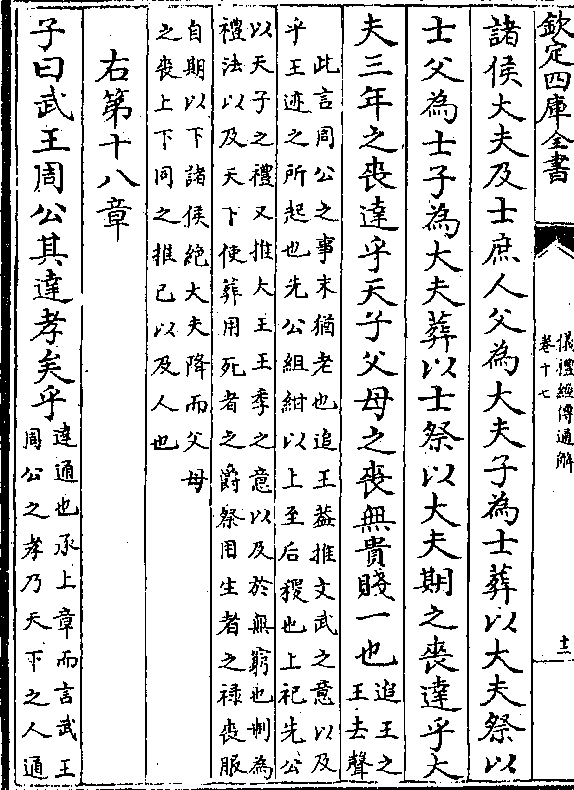 欽定四庫全書
儀禮經傳通解
卷十七
十二
諸侯大夫及士庶人父為大夫子為士葬以大夫祭以
士父為士子為大夫葬以士祭以大夫期之喪達乎大
夫三年之喪達乎天子父母之喪無貴賤一也
追王之
王去聲
此言周公之事末猶老也追王葢推文武之意以及
乎王迹之所起也先公組紺以上至后稷也上祀先公
以天子之禮又推大王王季之意以及於無窮也制為
禮法以及天下使葬用死者之爵祭用生者之祿喪服
自期以下諸侯絕大夫降而父母
之喪上下同之推已以及人也
右第十八章
子曰武王周公其達孝矣乎
達通也承上章而言武王
周公之孝乃天下之人通